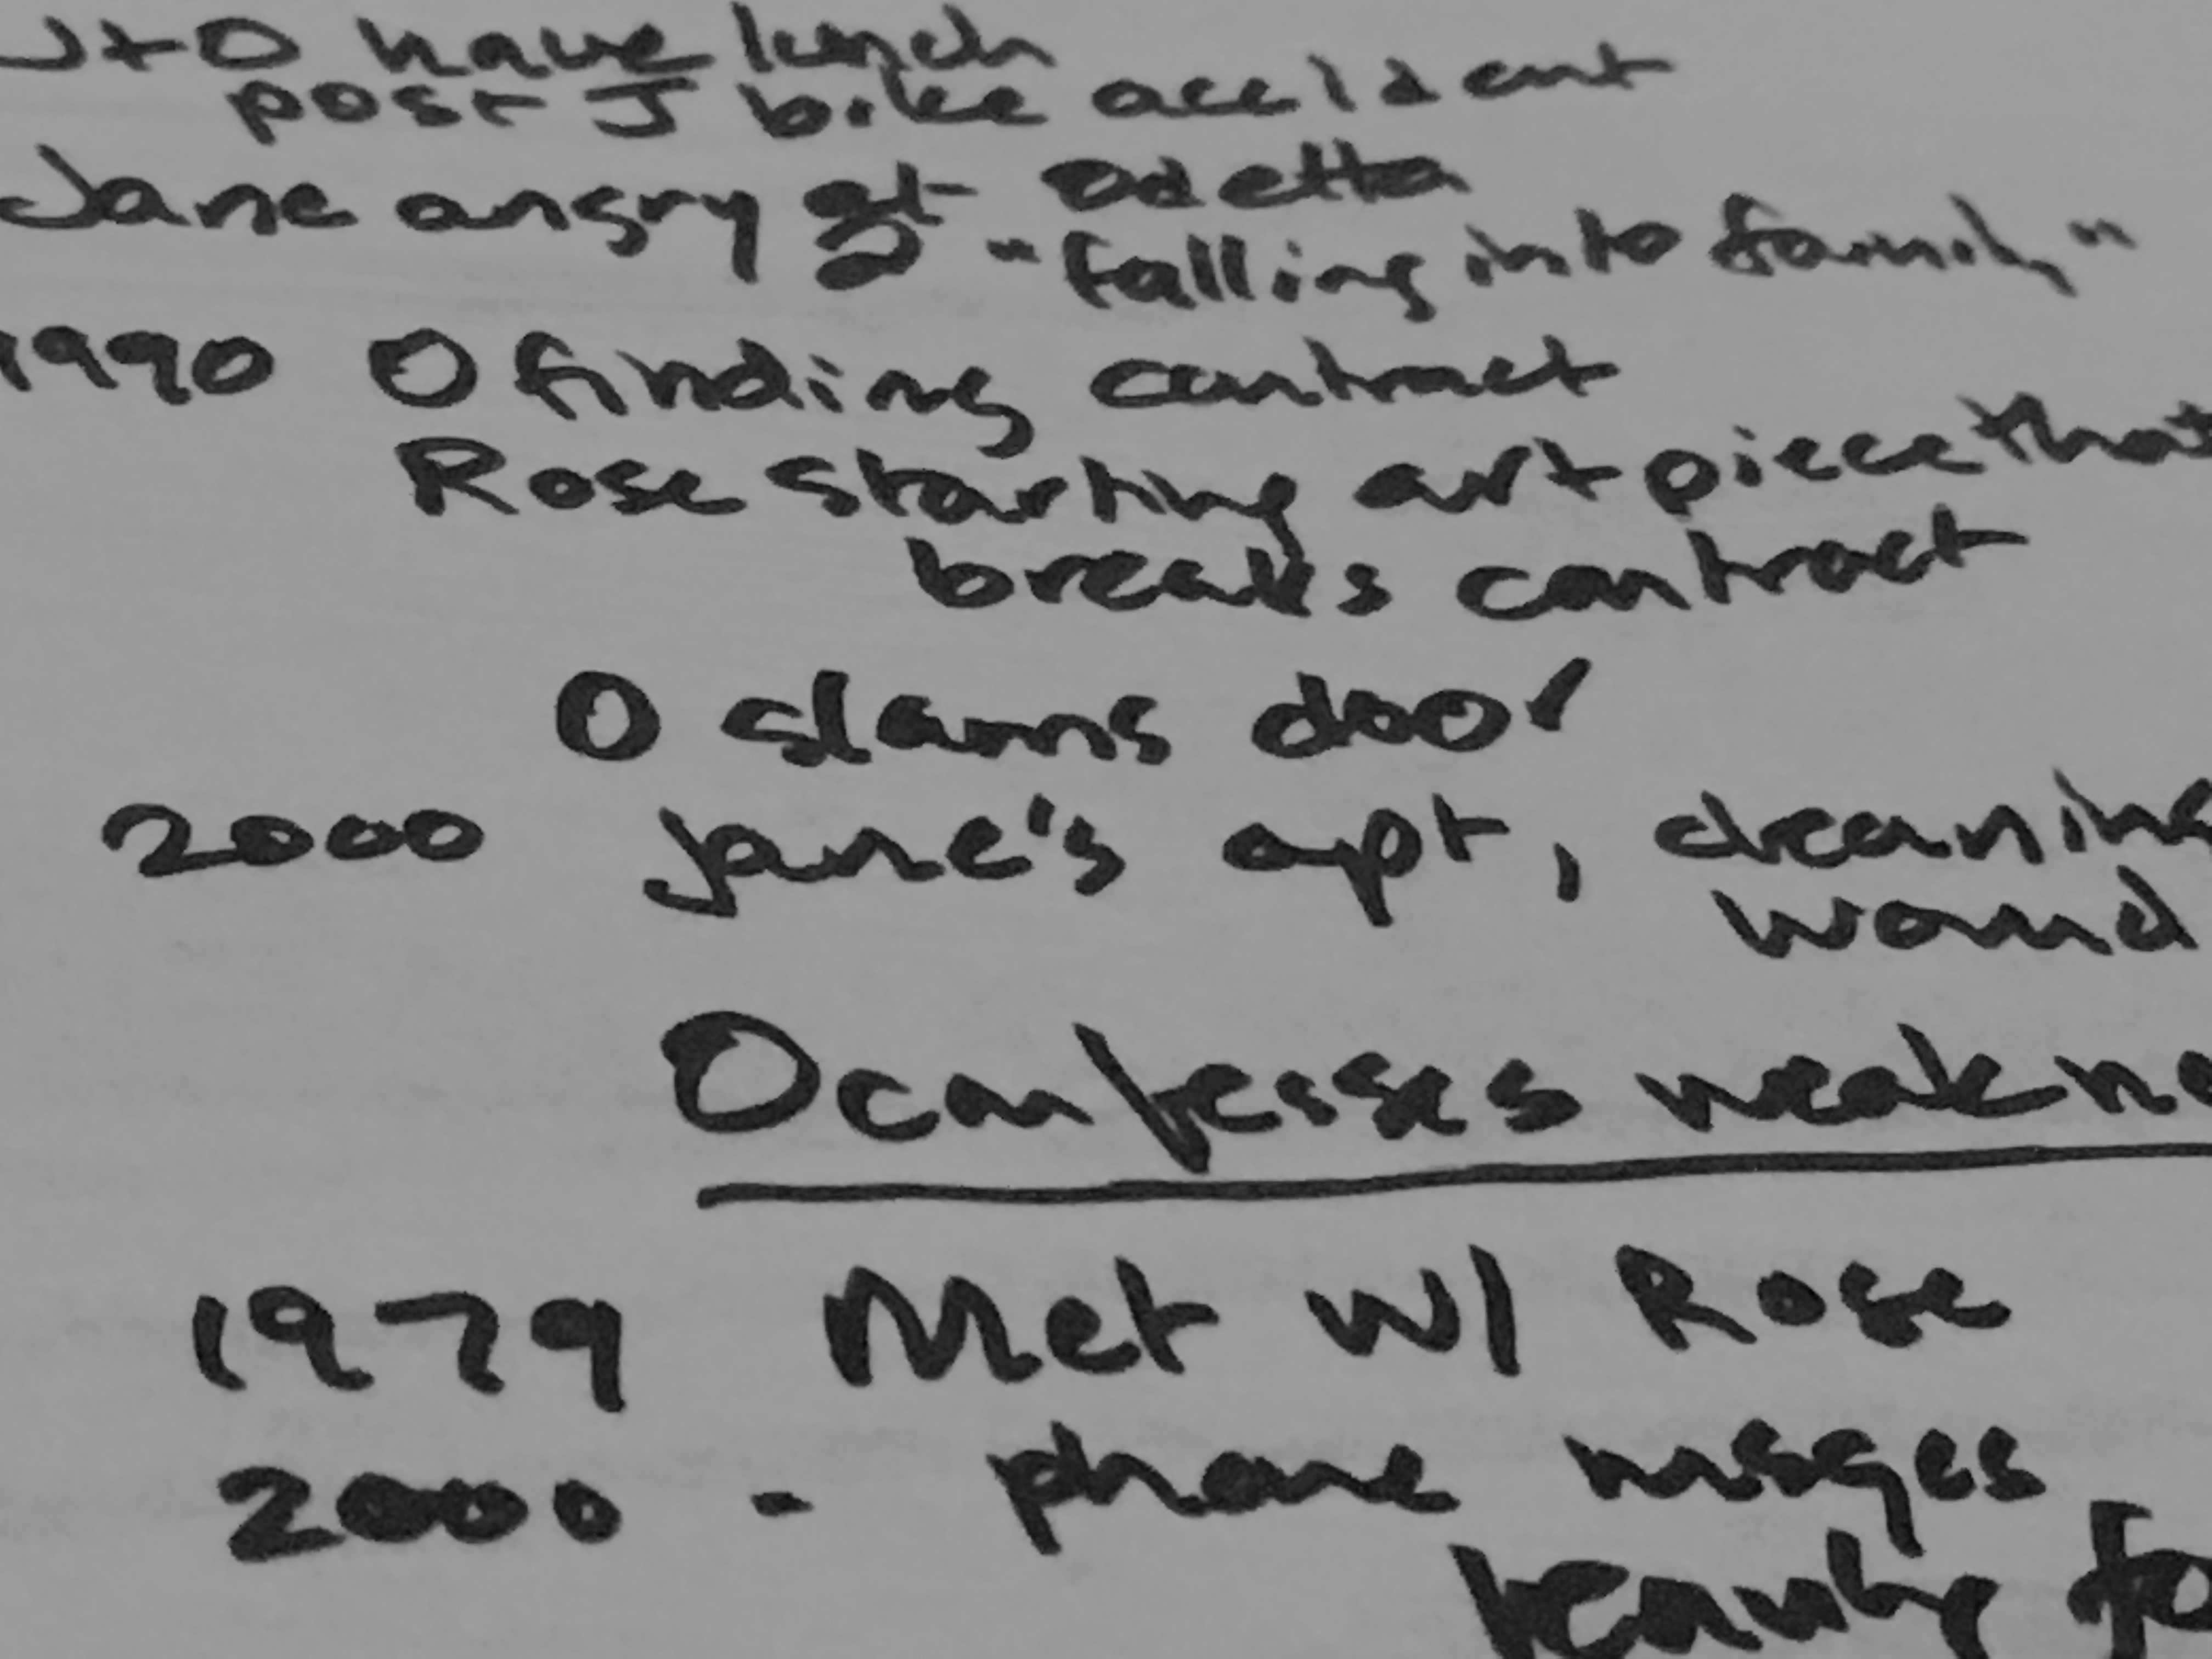 J+O have lunch
post J bike accident
Jane angry at Odetta
"falling into family"
1990 O finding contract
Rose starting art piece that
breaks contract
O slams door
2000 Jane's apt, cleaning
wound
O confesses weakne
1979 Met w/ Rose
2000 - phone msges
fo